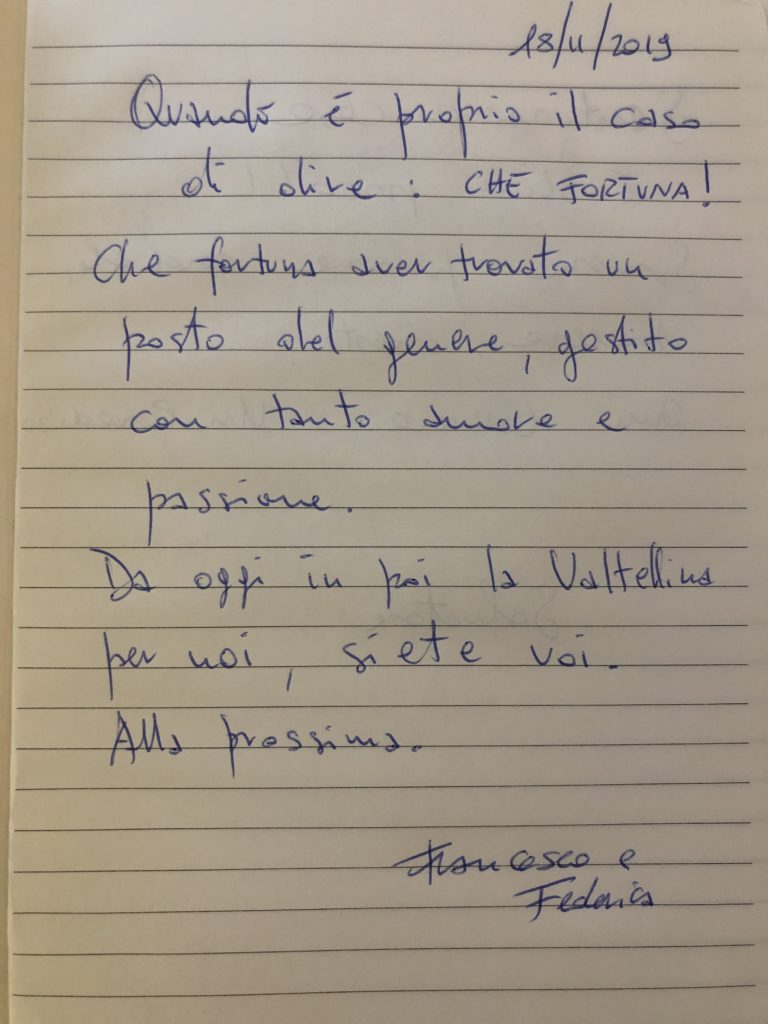 18/11/2019
Quando è proprio il caso
di dire : CHE FORTUNA!
Che fortuna aver trovato un
posto del genere, gestito
con tanto amore e
passione.
Da oggi in poi la Valtellina
per noi, siete voi.
Alla prossima.
Francesco e
Federica